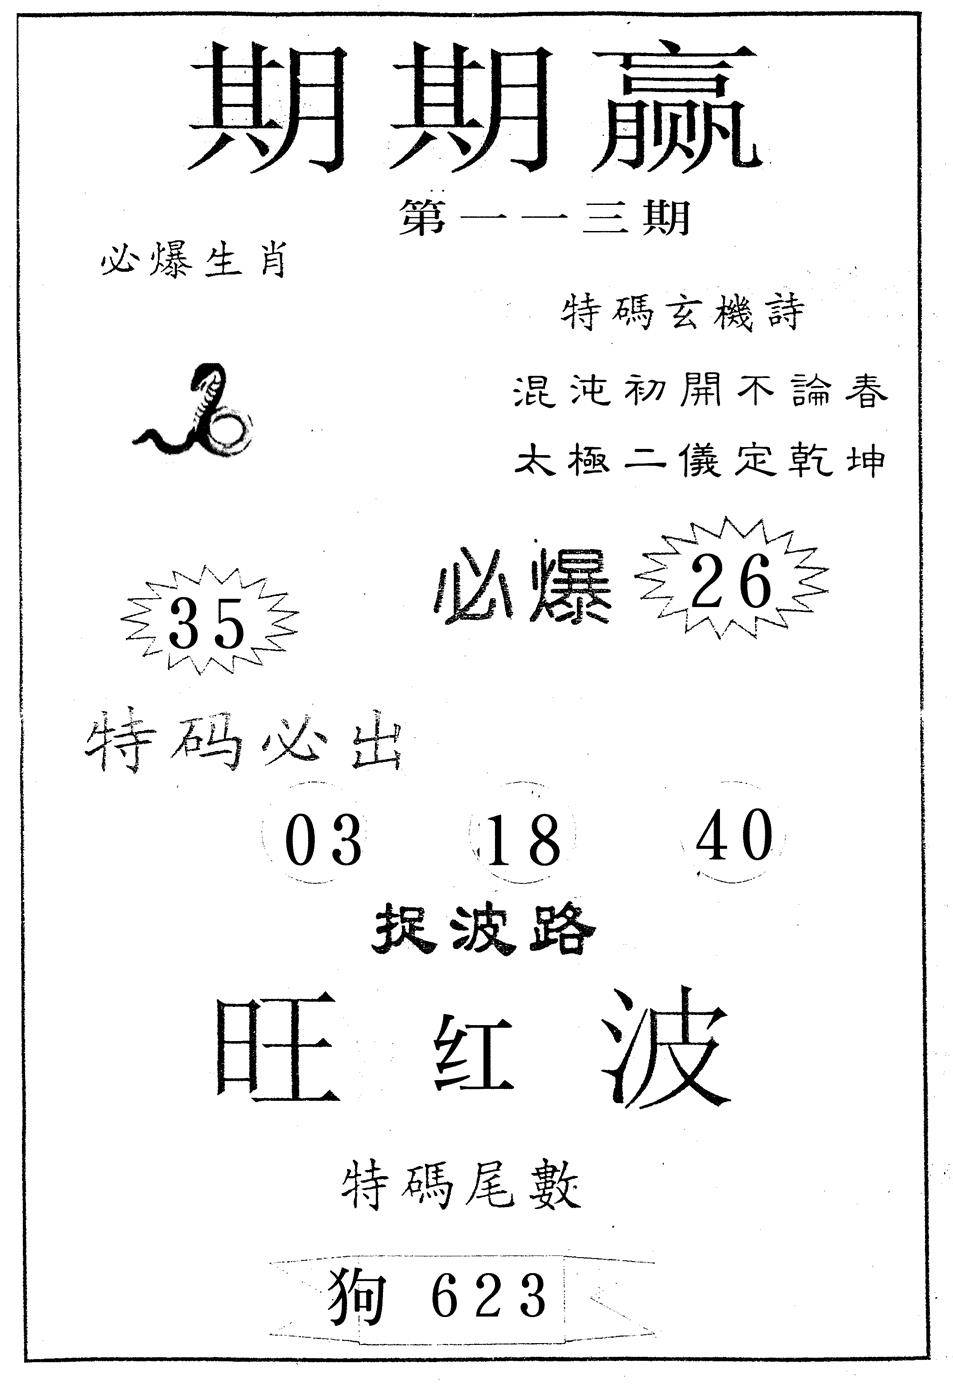 期期赢
第一一三期
必爆生肖
特碼玄機詩
混沌初開不論春
太極二儀定乾坤
必爆 26
35
特码必出
03 18 40
捉波路
旺红波
特碼尾數
狗 623